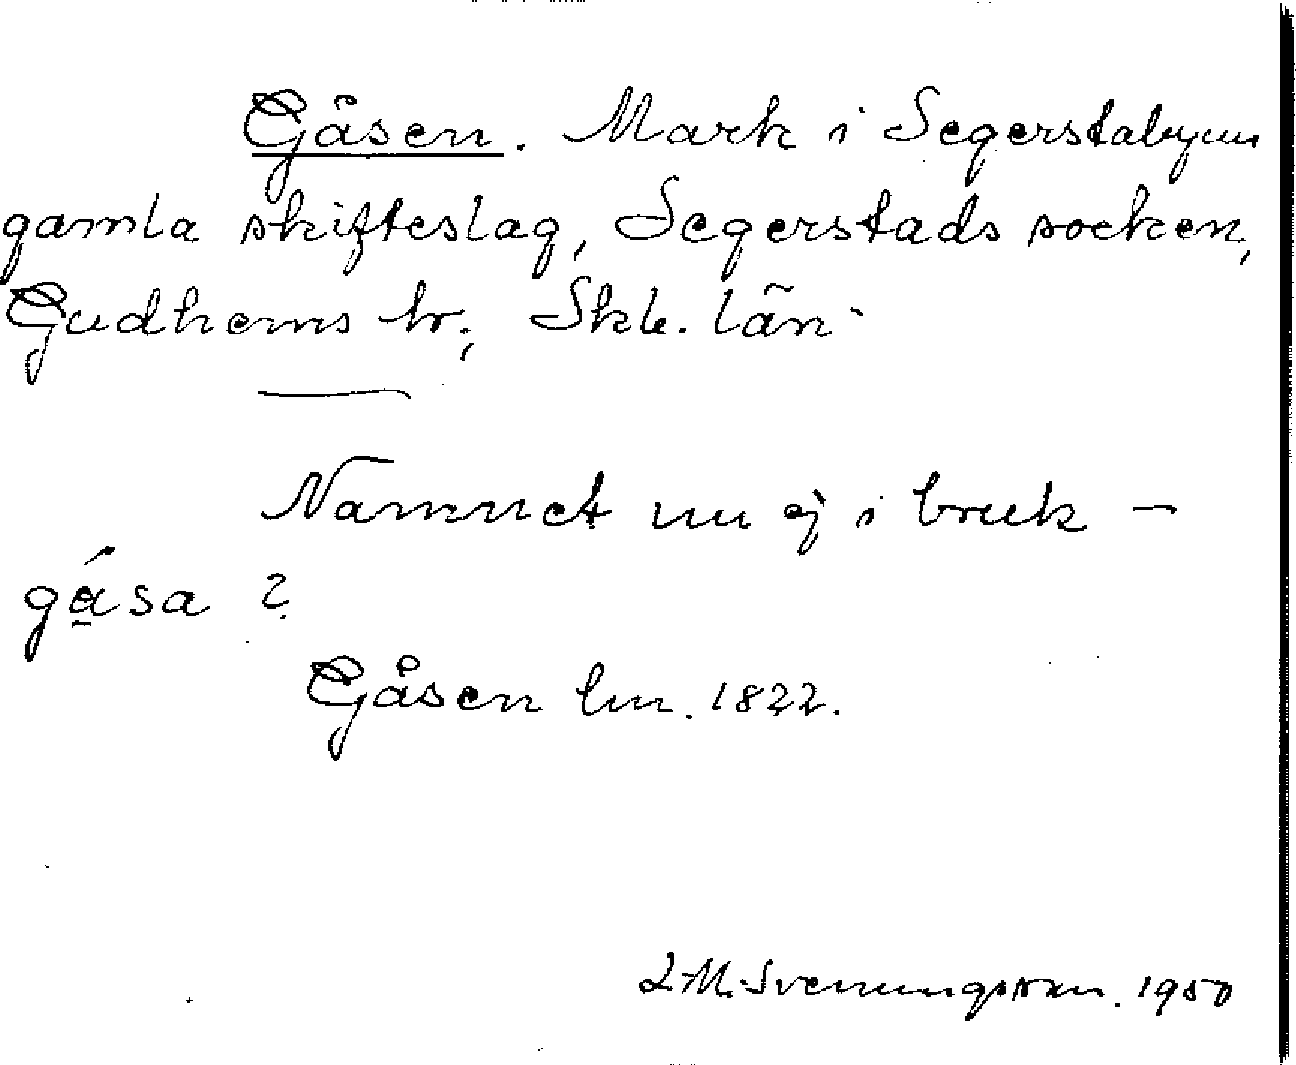 Gåsen. Mark i Segerstabyns
gamla skifteslag, Segerstads socken,
Gudhems hr; Skb. län.
Namnet nu ej i bruk –
gása ?
Gåsen lm. 1822.
L-M. Svenungsson. 1950